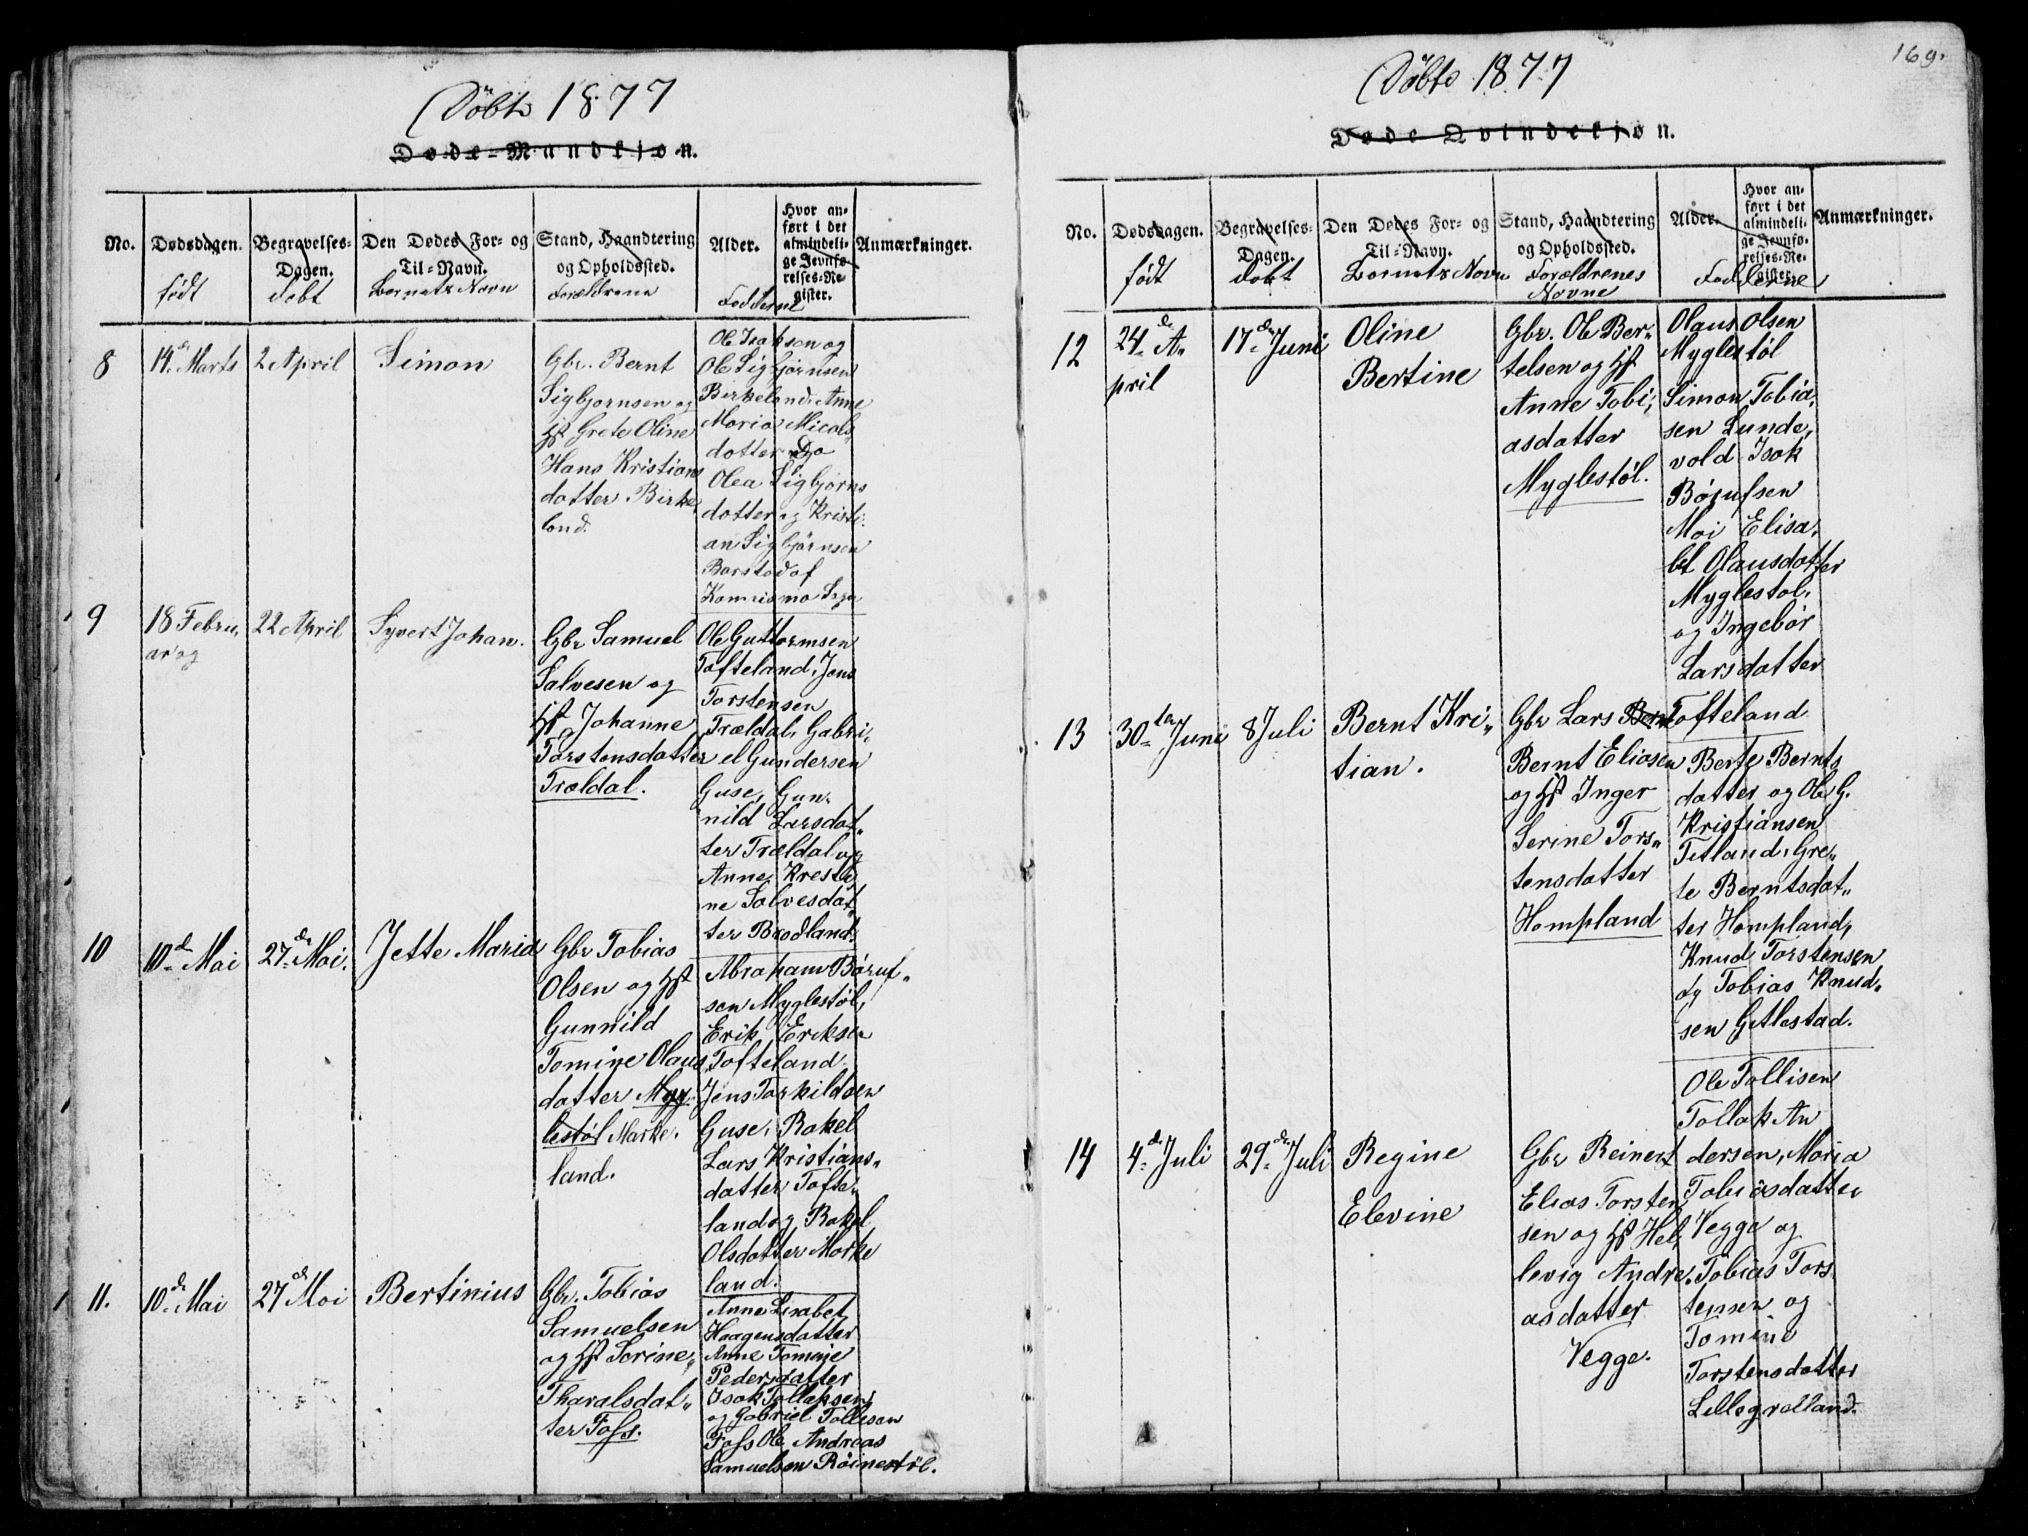 Döbte 1877
Døde-Mandkjøn.
No.
Dødsdagen.
født
Begravelses-
Dagen.
døbt
Den Dødes For- og
Til-Navn.
Barnets Navn
Stand, Haandtering
og Opholdssted.
Forældrene
Alder.
Hvor an-
ført i det
almindeli-
ge Jevnfø-
relses-Re-
gister.
Fadderne
Anmærkninger.
8
14. Marts
2 April
Simon
Gbr. Bernt
Sigbjornsen og
Hst Grete Oline
Hans Kristians
datter Birke
land.
Ole Isaksen og
Ole Sigbjørnsen
Birkeland, Anne
Maria Nicols
datter
Olea Sigbjørns
datter og Kristi.
an Sigbjørnsen
Barstad af
9
18 Febru,
ar
22 April
Syvert Johan.
Gbr Samuel
Salvesen og
Hst Johanne
Torstensdatter
Trældal.
Ole Guttormsen
Tofteland, Jens
Torstensen
Trældal, Gabri,
el Gundersen
Guse, Gun,
nild Larsdat„
ter Trældal og
Anne Kresti,
ne Salvesdat„
ter Brodland.
10
10de Mai
27de Mai.
Jette Maria
Gbr Tobias
Olsen og Hst
Gunnild
Tomine Olaus
datter Myg-
lestøl Marke,
land.
Abraham Börufs„
sen Myglestøl,
Erik Eriksen
Tofteland
Jens Torkildsen
Guse, Rakel
Lars Kristians„
datter Tofte,
land og Rakel
Olsdatter Marke
land.
11.
10de Mai
27de Mai
Bertinius
Gbr. Tobias
Samuelsen
og Hst Serine„
Tharalsdat„
ter Foss.
Anne Lisabet
Haagensdatter
Anne Tomine
Pedersdatter
Isak Tollaksen
og Gabriel Tollisen
Foss Ole Andreas
Samuelsen Röinestöl.
169.
Döbte 1877
Døde Qvindekjøn.
No.
Dødsdagen.
født
Begravelses-
Dagen.
døbt
Den Dødes For- og
Til-Navn.
Barnets Navn
Stand, Haandtering
og Opholdssted.
Forældrenes
Navne
Alder.
Hvor an-
ført i det
almindeli-
ge Jevnfø-
relses-Re-
gister.
Fadderne
Anmærkninger.
12
24de A„
pril
17de Juni
Oline
Bertine
Gbr. Ole Ber„
telsen og Hst
Anne Tobi,
asdatter
Myglestøl.
Olaus Olsen
Myglestøl
Simon Tobia,
sen Lunde,
vold Isak
Börufsen
Moi Elisa,
bet Olausdatter
Myglestøl,
og Ingebør
Larsdatter
Tofteland
13
30te Juni
8 Juli
Bernt Kri„
tian.
Gbr Lars Bernt
Bernt Eliasen
og Hst Inger
Serine Tors„
tensdatter
Hompland
Berte Bernts,
datter og Ole G.
Kristiansen
Titland, Gre„
te Berntsdat„
ter Hompland,
Knud Torstensen
og Tobias Knud„
sen Gitlestad.
14
4de Juli
29de Juli
Regine
Elevine
Gbr Reinert
Elias Torsten
sen og Hst Hel,
levig Andre,
asdatter
Vegge.
Ole Tollisen
Tollak An
dersen, Maria
Tobiasdatter
Vegge og
Tobias Tors
tensen og
Tomine
Torstensdatter
Lillegrelland.